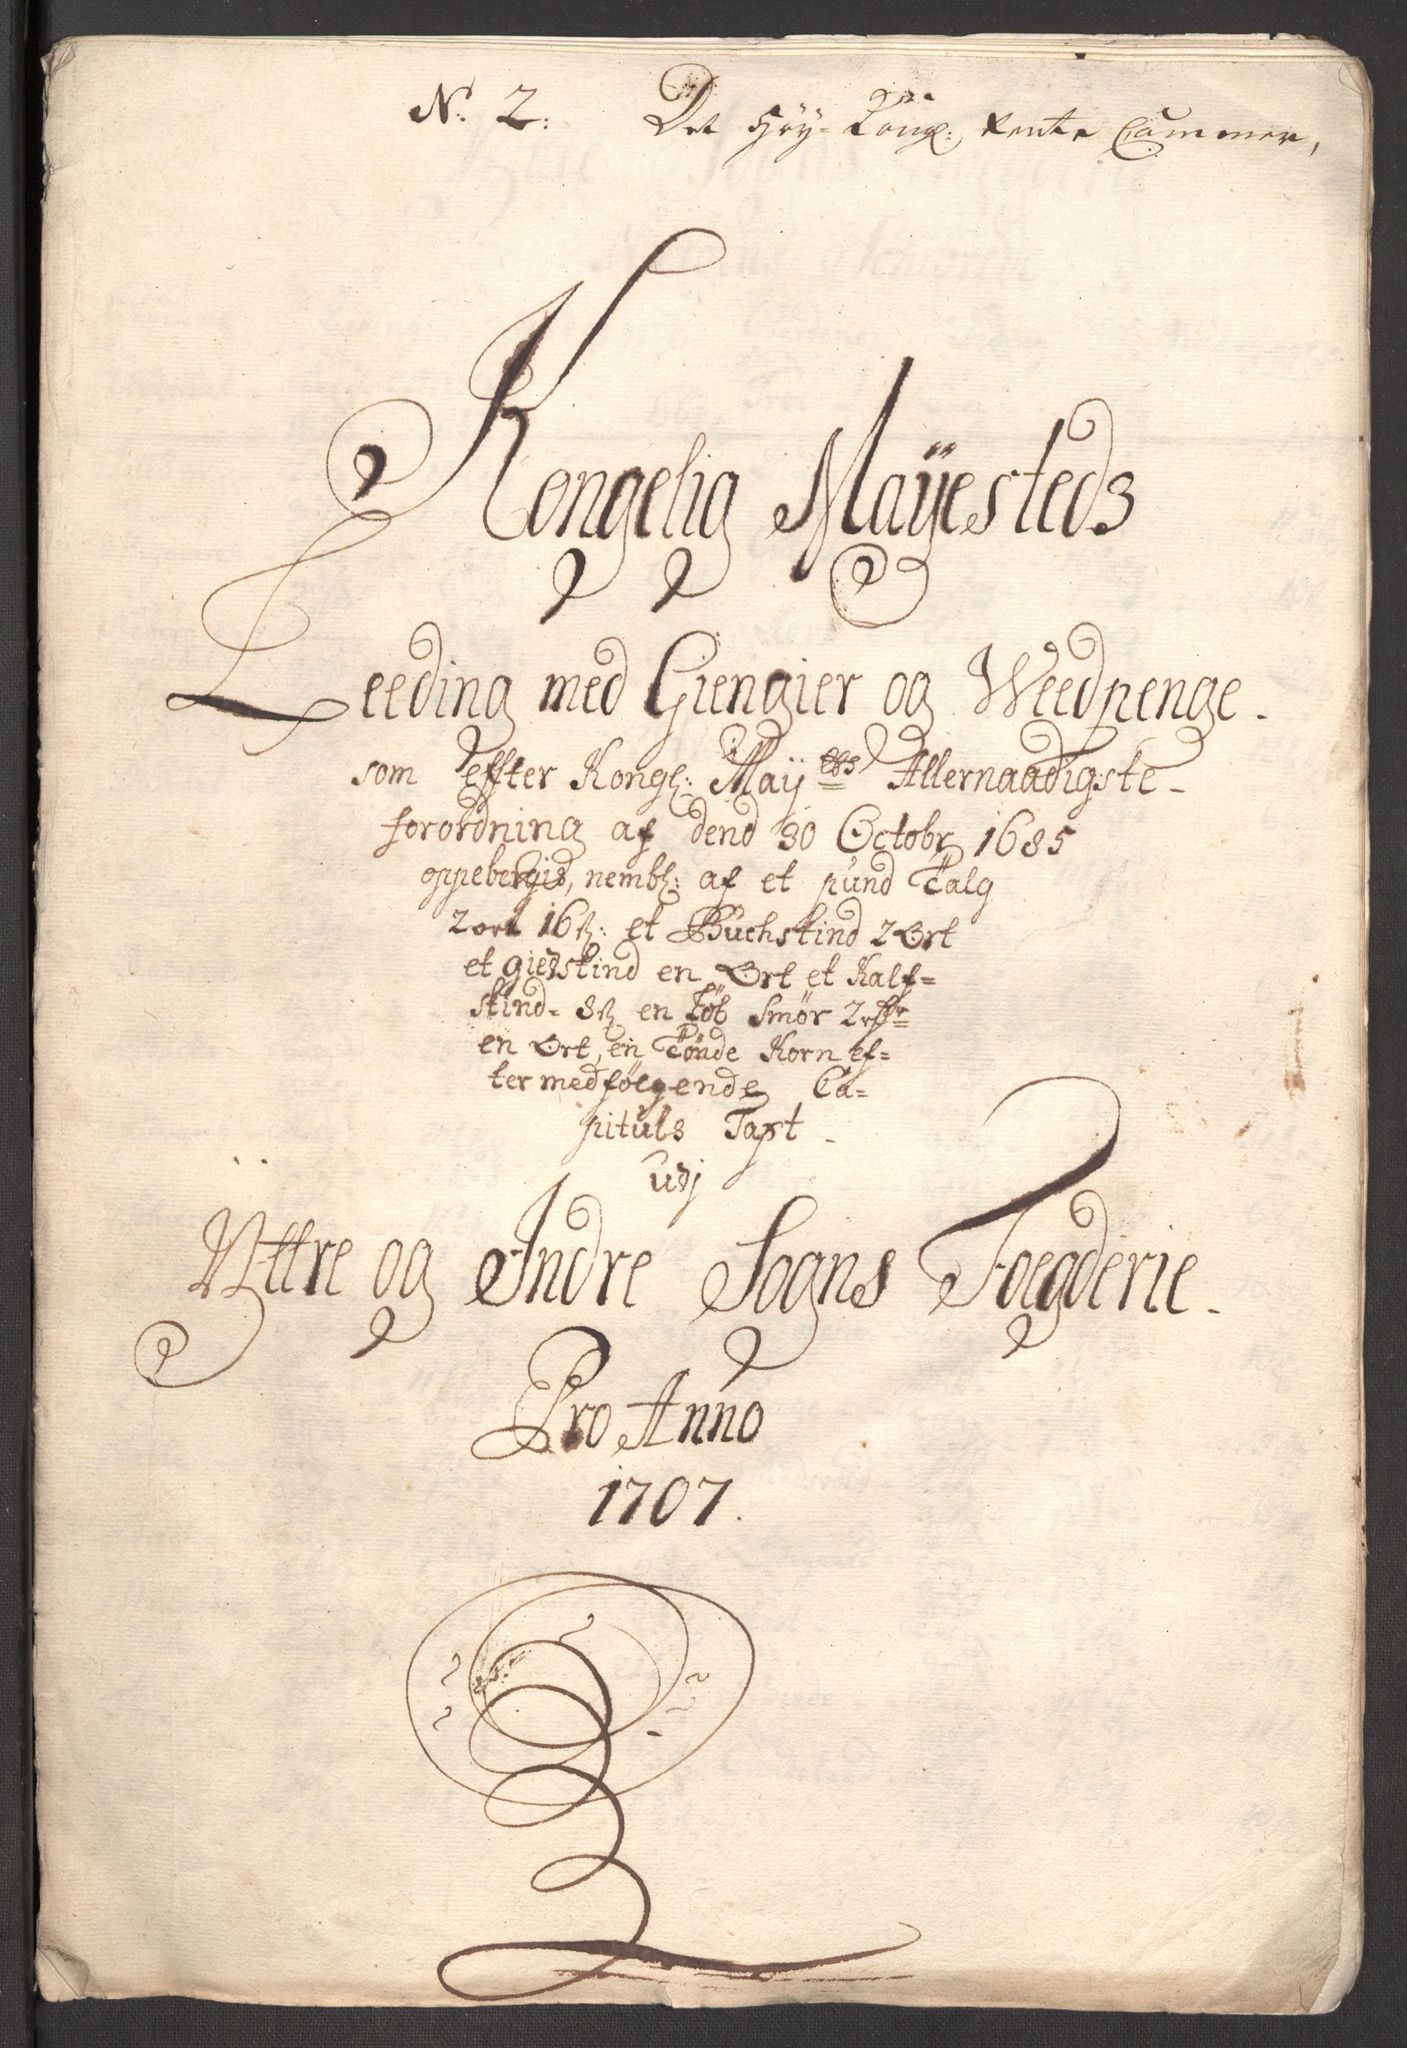 No. 2. Det Høy- Kongl: Rente Cammer,
Kongelig Mayesteds
Leeding med Giengier og Weedpenge.
som effter Kongl: Mayttes Allernaadigste
forordning af dend 30 Octobr 1685
oppebergis, nembl: af et pund Talg
2 ort 16 ß: et Buchskind 2 Ort
et giedskind en Ort et Kalf=
skind- 8 ß en Løb Smør 2 rdr
en Ort, en Tønde Korn ef=
ter medfølgende Ca=
pituls Taxt
udj
Yttre og Indre Sogns Foegderie.
Pro Anno
1707.